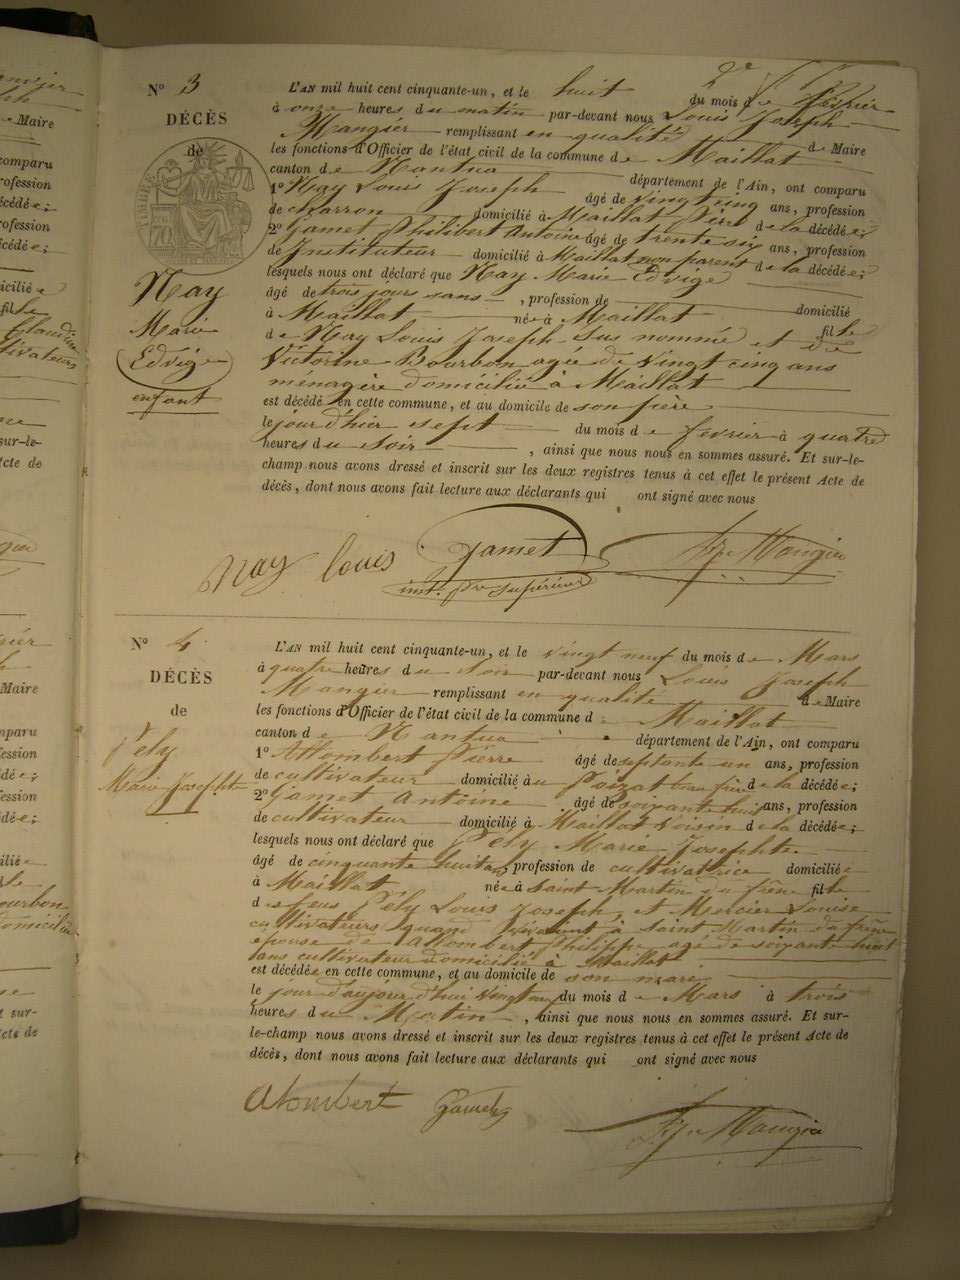 2e
No 3
DÉCÈS
de
TIMBRE
Nay
Marie
Edvige
enfant
L'AN mil huit cent cinquante-un, et le huit du mois de Février
à onze heures du matin par-devant nous Louis Joseph
Mangier remplissant en qualité de Maire
les fonctions d'Officier de l'état civil de la commune de Maillat
canton de Nantua département de l'Ain, ont comparu
1o Nay Louis Joseph âgé de vingt cinq ans, profession
de charron domicilié à Maillat Père de la décédée;
2o Gamet Philibert Antoine âgé de trente six ans, profession
de Instituteur domicilié à Maillat non parent de la décédée;
lesquels nous ont déclaré que Nay Marie Edvige
âgé de trois jours sans , profession de domicilié
à Maillat née à Maillat fille
de Nay Louis Joseph sus nommé et de
Victorine Bourbon agée de vingt cinq ans
ménagère domiciliée à Maillat
est décédé en cette commune, et au domicile de son père
le jour d'hier sept du mois de février à quatre
heures du soir , ainsi que nous nous en sommes assuré. Et sur-le-
champ nous avons dressé et inscrit sur les deux registres tenus à cet effet le présent Acte de
décès, dont nous avons fait lecture aux déclarants qui ont signé avec nous
Nay louis Gamet Mangier
inst. pre supérieur
No 4
DÉCÈS
de
Pély
Marie Josephte
L'AN mil huit cent cinquante-un, et le vingt neuf du mois de Mars
à quatre heures du soir par-devant nous Louis Joseph
Mangier remplissant en qualité de Maire
les fonctions d'Officier de l'état civil de la commune d Maillat
canton de Nantua département de l'Ain, ont comparu
1o Allombert Pierre âgé de septante un ans, profession
de cultivateur domicilié au Poizat beau frère de la décédée;
2o Gamet Antoine âgé de soixante huit ans, profession
de cultivateur domicilié à Maillat Voisin de la décédée;
lesquels nous ont déclaré que Pély Marie Josephte
âgé de cinquante huit ans, profession de cultivatrice domiciliée
à Maillat née à Saint-Martin du frêne fille
de feus Pély Louis Joseph, et Mercier Louise
cultivateurs quand vivaient à Saint Martin du frêne
epouse de Allombert Philippe age de soixante huit
ans cultivateur domicilié à Maillat
est décédée en cette commune, et au domicile de son mari
le jour d'aujourd'hui vingt neuf du mois de Mars à trois
heures du Matin , ainsi que nous nous en sommes assuré. Et sur-
le-champ nous avons dressé et inscrit sur les deux registres tenus à cet effet le présent Acte de
décès, dont nous avons fait lecture aux déclarants qui ont signé avec nous
Alombert Gamet Mangier